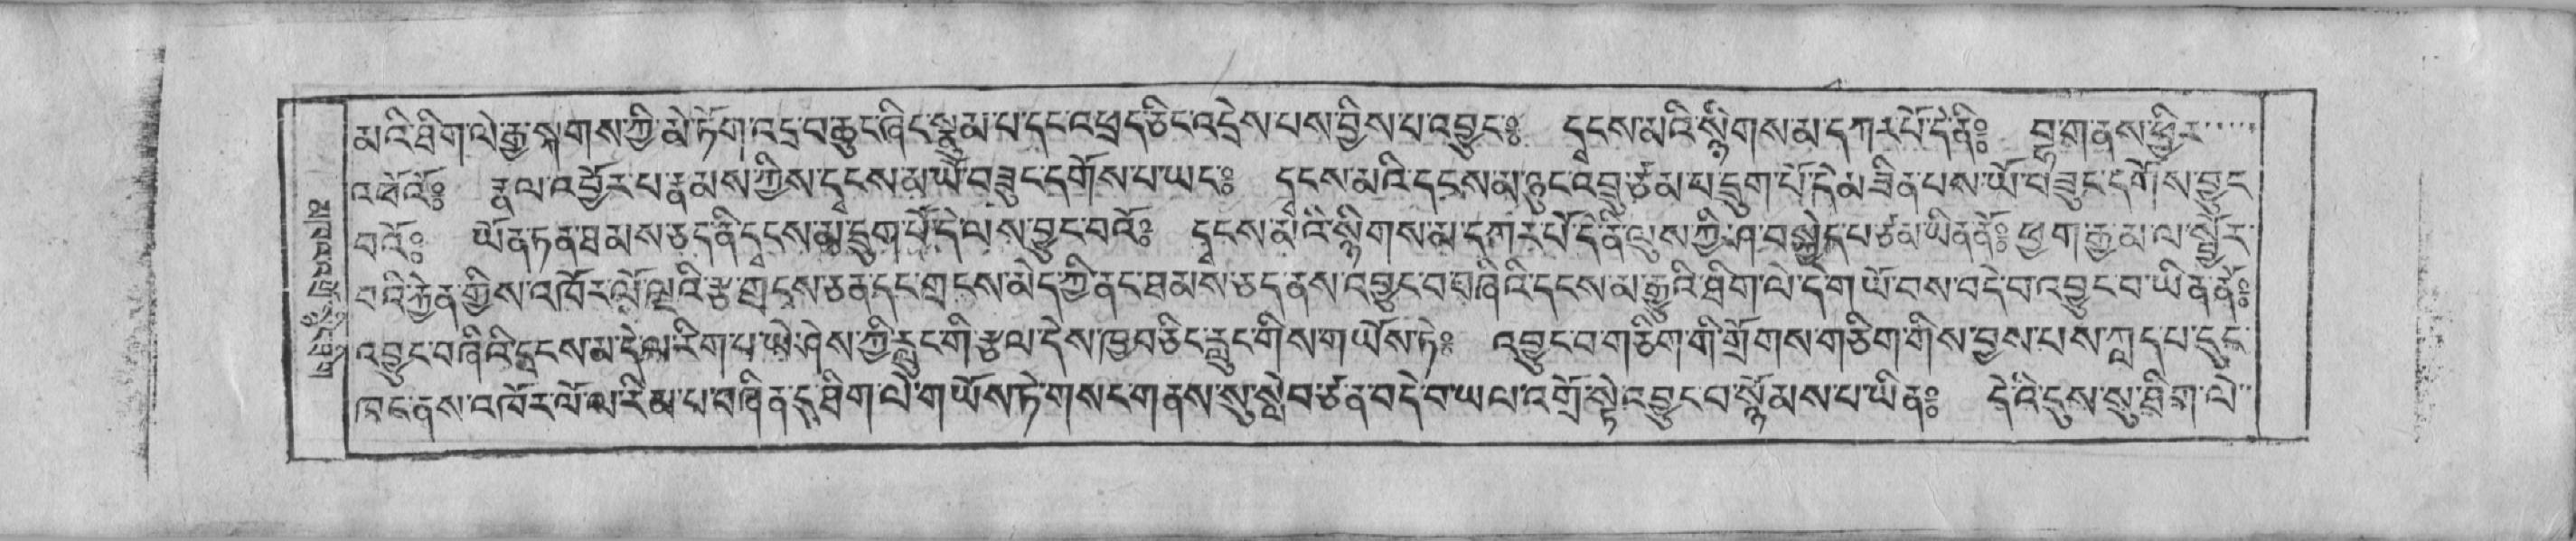 མའི་ཐིག་ལེ་རྒྱ་སྐྱེགས་ཀྱི་མེ་ཏོག་འདྲ་བ་ཆུང་ཞིང་སྣུམ་པ་དང་འཕྲད་ཅིང་འདྲེས་པས་བྱིས་པ་འབྱུང༔ དྭངས་མའི་སྙིགས་མ་དཀར་པོ་དེ་ནི༔ བྷ་ག་ནས་ཕྱིར་
འཕོའོ༔ རྣལ་འབྱོར་པ་རྣམས་ཀྱིས་དྭངས་མ་ཡོ་བཟུང་དགོས་པ་ཡང༔ དྭངས་མའི་དྭངས་མ་ཉུང་འབྲུ་ཙམ་པ་དྲུག་པོ་དེ་མ་ཟིན་པས་ཡོ་བཟུང་དགོས་བྱུང་
བའོ༔ ཡོན་ཏན་ཐམས་ཅད་ནི་དྭངས་མ་དྲུག་པོ་དེ་ལས་བྱུང་བའོ༔ དྭངས་མའི་སྙིགས་མ་དཀར་པོ་དེ་ནི་ལུས་ཀྱི་ཤ་བསྐྱེད་པ་ཙམ་ཡིན་ནོ༔ ཕྱག་རྒྱ་མ་ལ་སྦྱོར་
བའི་རྐྱེན་གྱིས་འཁོར་ལོ་ལྔའི་རྩ་གྲངས་ཅན་དང་གྲངས་མེད་ཀྱི་ནང་ཐམས་ཅད་ནས་འབྱུང་བ་བཞིའི་དྭངས་མ་རྒྱུའི་ཐིག་ལེ་དེ་གཡོ་བས་བདེ་བ་འབྱུང་བ་ཡིན་ནོ༔
འབྱུང་བ་བཞིའི་དྭངས་མ་དེ་ལ་རིག་པ་ཡེ་ཤེས་ཀྱི་རླུང་གི་རྩལ་དེས་ཁྱབ་ཅིང་རླུང་གིས་གཡོས་ཏེ༔ འབྱུང་བ་གཅིག་གི་གྲོགས་གཅིག་གིས་བྱས་པས་ཀླད་པ་དུང་
ཁང་ནས་འཁོར་ལོ་ལ་རིམ་པ་བཞིན་དུ་ཐིག་ལེ་གཡོས་ཏེ་གསང་གནས་སུ་སླེབ་ཙ་ན་བདེ་བ་ཡལ་འགྲོ་སྟེ་འབྱུང་བ་སྙོམས་པ་ཡིན༔ དེའི་དུས་སུ་ཐིག་ལེ་